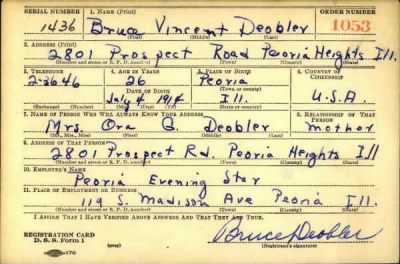 SERIAL NUMBER 1. NAME (Print) ORDER NUMBER
1436 Bruce Vincent Deobler 1053
(First) (Middle) (Last)
2. ADDRESS (Print)
2801 Prospect Road Peoria Heights Ill.
(Number and street or R. F. D. number) (Town) (County) (State)
3. TELEPHONE 4. AGE IN YEARS 5. PLACE OF BIRTH 6. COUNTRY OF CITIZENSHIP
2-3646 26 Peoria
DATE OF BIRTH (Town or county)
July 4 1914 Ill. U.S.A.
(Exchange) (Number) (Mo.) (Day) (Yr.) (State or country)
7. NAME OF PERSON WHO WILL ALWAYS KNOW YOUR ADDRESS 8. RELATIONSHIP OF THAT PERSON
Mrs. Ora G. Deobler mother
(Mr., Mrs., Miss) (First) (Middle) (Last)
9. ADDRESS OF THAT PERSON
2801 Prospect Rd. Peoria Heights Ill
(Number and street or R. F. D. number) (Town) (County) (State)
10. EMPLOYER'S NAME
Peoria Evening Star
11. PLACE OF EMPLOYMENT OR BUSINESS
119 S. Madison Ave Peoria Ill.
(Number and street or R. F. D. number) (Town) (County) (State)
I AFFIRM THAT I HAVE VERIFIED ABOVE ANSWERS AND THAT THEY ARE TRUE.
REGISTRATION CARD
D. S. S. Form 1 Bruce Deobler
(Registrant's signature)